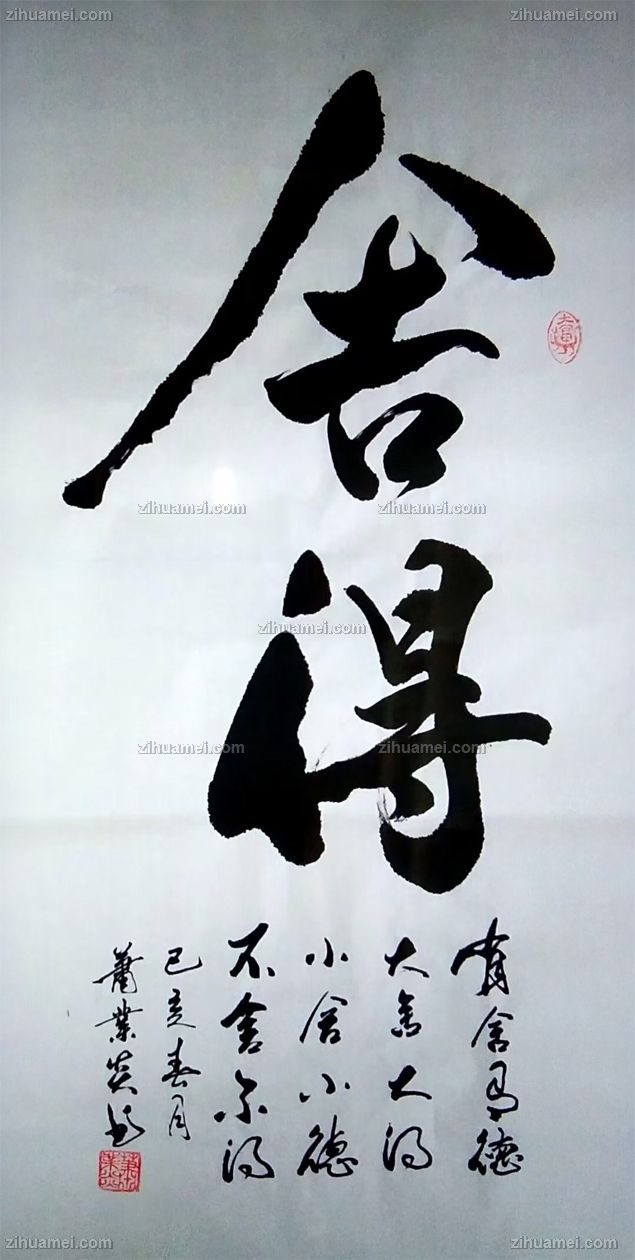 舍得
有舍有德
大舍大得
小舍小德
不舍不得
己亥春月
萧业炎题
zihuamei.com
zihuamei.com
zihuamei.com
zihuamei.com
zihuamei.com
zihuamei.com
zihuamei.com
zihuamei.com
zihuamei.com